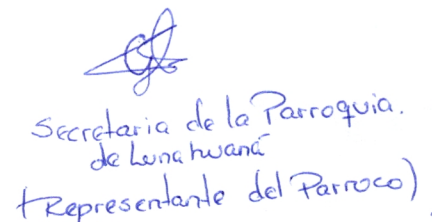 Secretaria de la Parroquia.
de Lunahuaná
(Representante del Parroco)